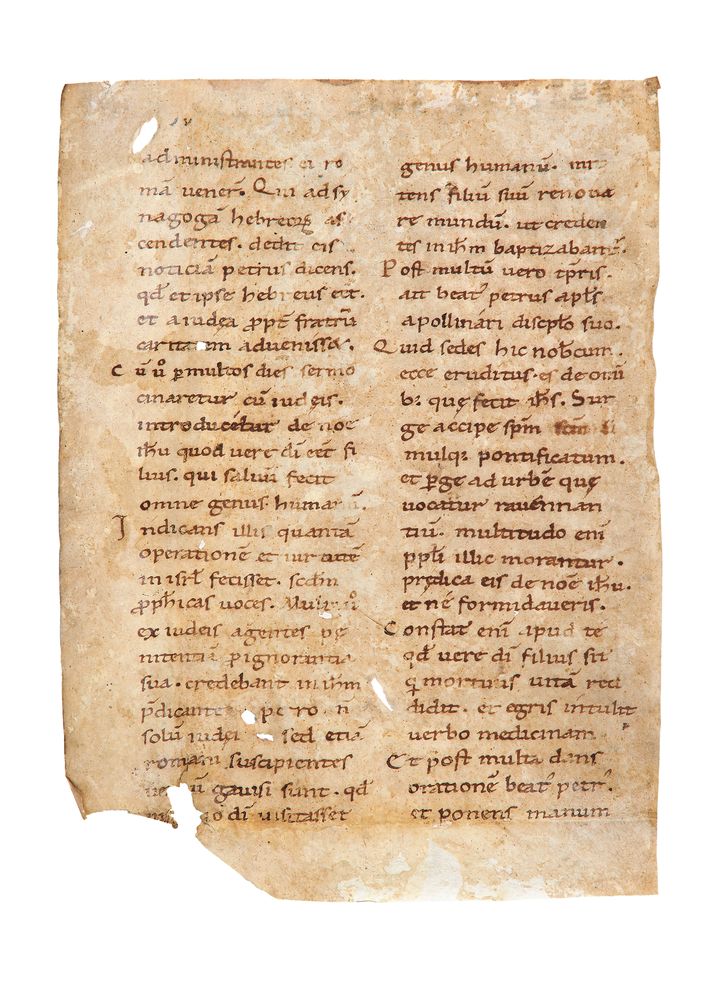 administrantes ei ro
mā vener̄. Qui ad sy
nagogā hebreoꝝ as
cendentes. dedit eis
noticiā petrus dicens.
qđ et ipse hebreus eēt.
et a iudea ꝓpt̄ fratrū
caritatem advenisset.
Cū ů ꝑ multos dies sermo
cinaretur cū iudeis.
introducetur de noe
ihu quod vere dī eēt fi
lius. qui salvū fecit
omne genus humanū.
Indicans illis quantā
operationē et virtutē
in isrł fecisset. scdm
ꝓphicas voces. Multi ů
ex iudeis agentes pe
nitentiā ꝑ ignorantia
sua. credebant in ihm
p̄dicante petro. n
solū iudei sed etiā
romani suscipientes
gavisi sunt. qđ
dī visitasset
genus humanū. mit
tens filiū suū renova
re mundū. ut creden
tes in ihm baptizabant᷑.
Post multū vero tp̄ris.
ait beat᷑ petrus apłs
apollinari discpło suo.
Quid sedes hic nobcum.
ecce eruditus es de omī
bꝫ que fecit ihs. Sur
ge accipe spm scm si
mulqꝫ pontificatum.
et ꝑge ad urbē que
vocatur ravennan
tiū. multitudo enī
ppłi illic morantur.
predica eis de noē ihu.
et nē formidaveris.
Constat enī apud te
qđ vere dī filius sit
q̇ mortuis vitā red
didit. et egris intulit
verbo medicinam
Et post multa dans
orationē beat᷑ petr᷑.
et ponens manum